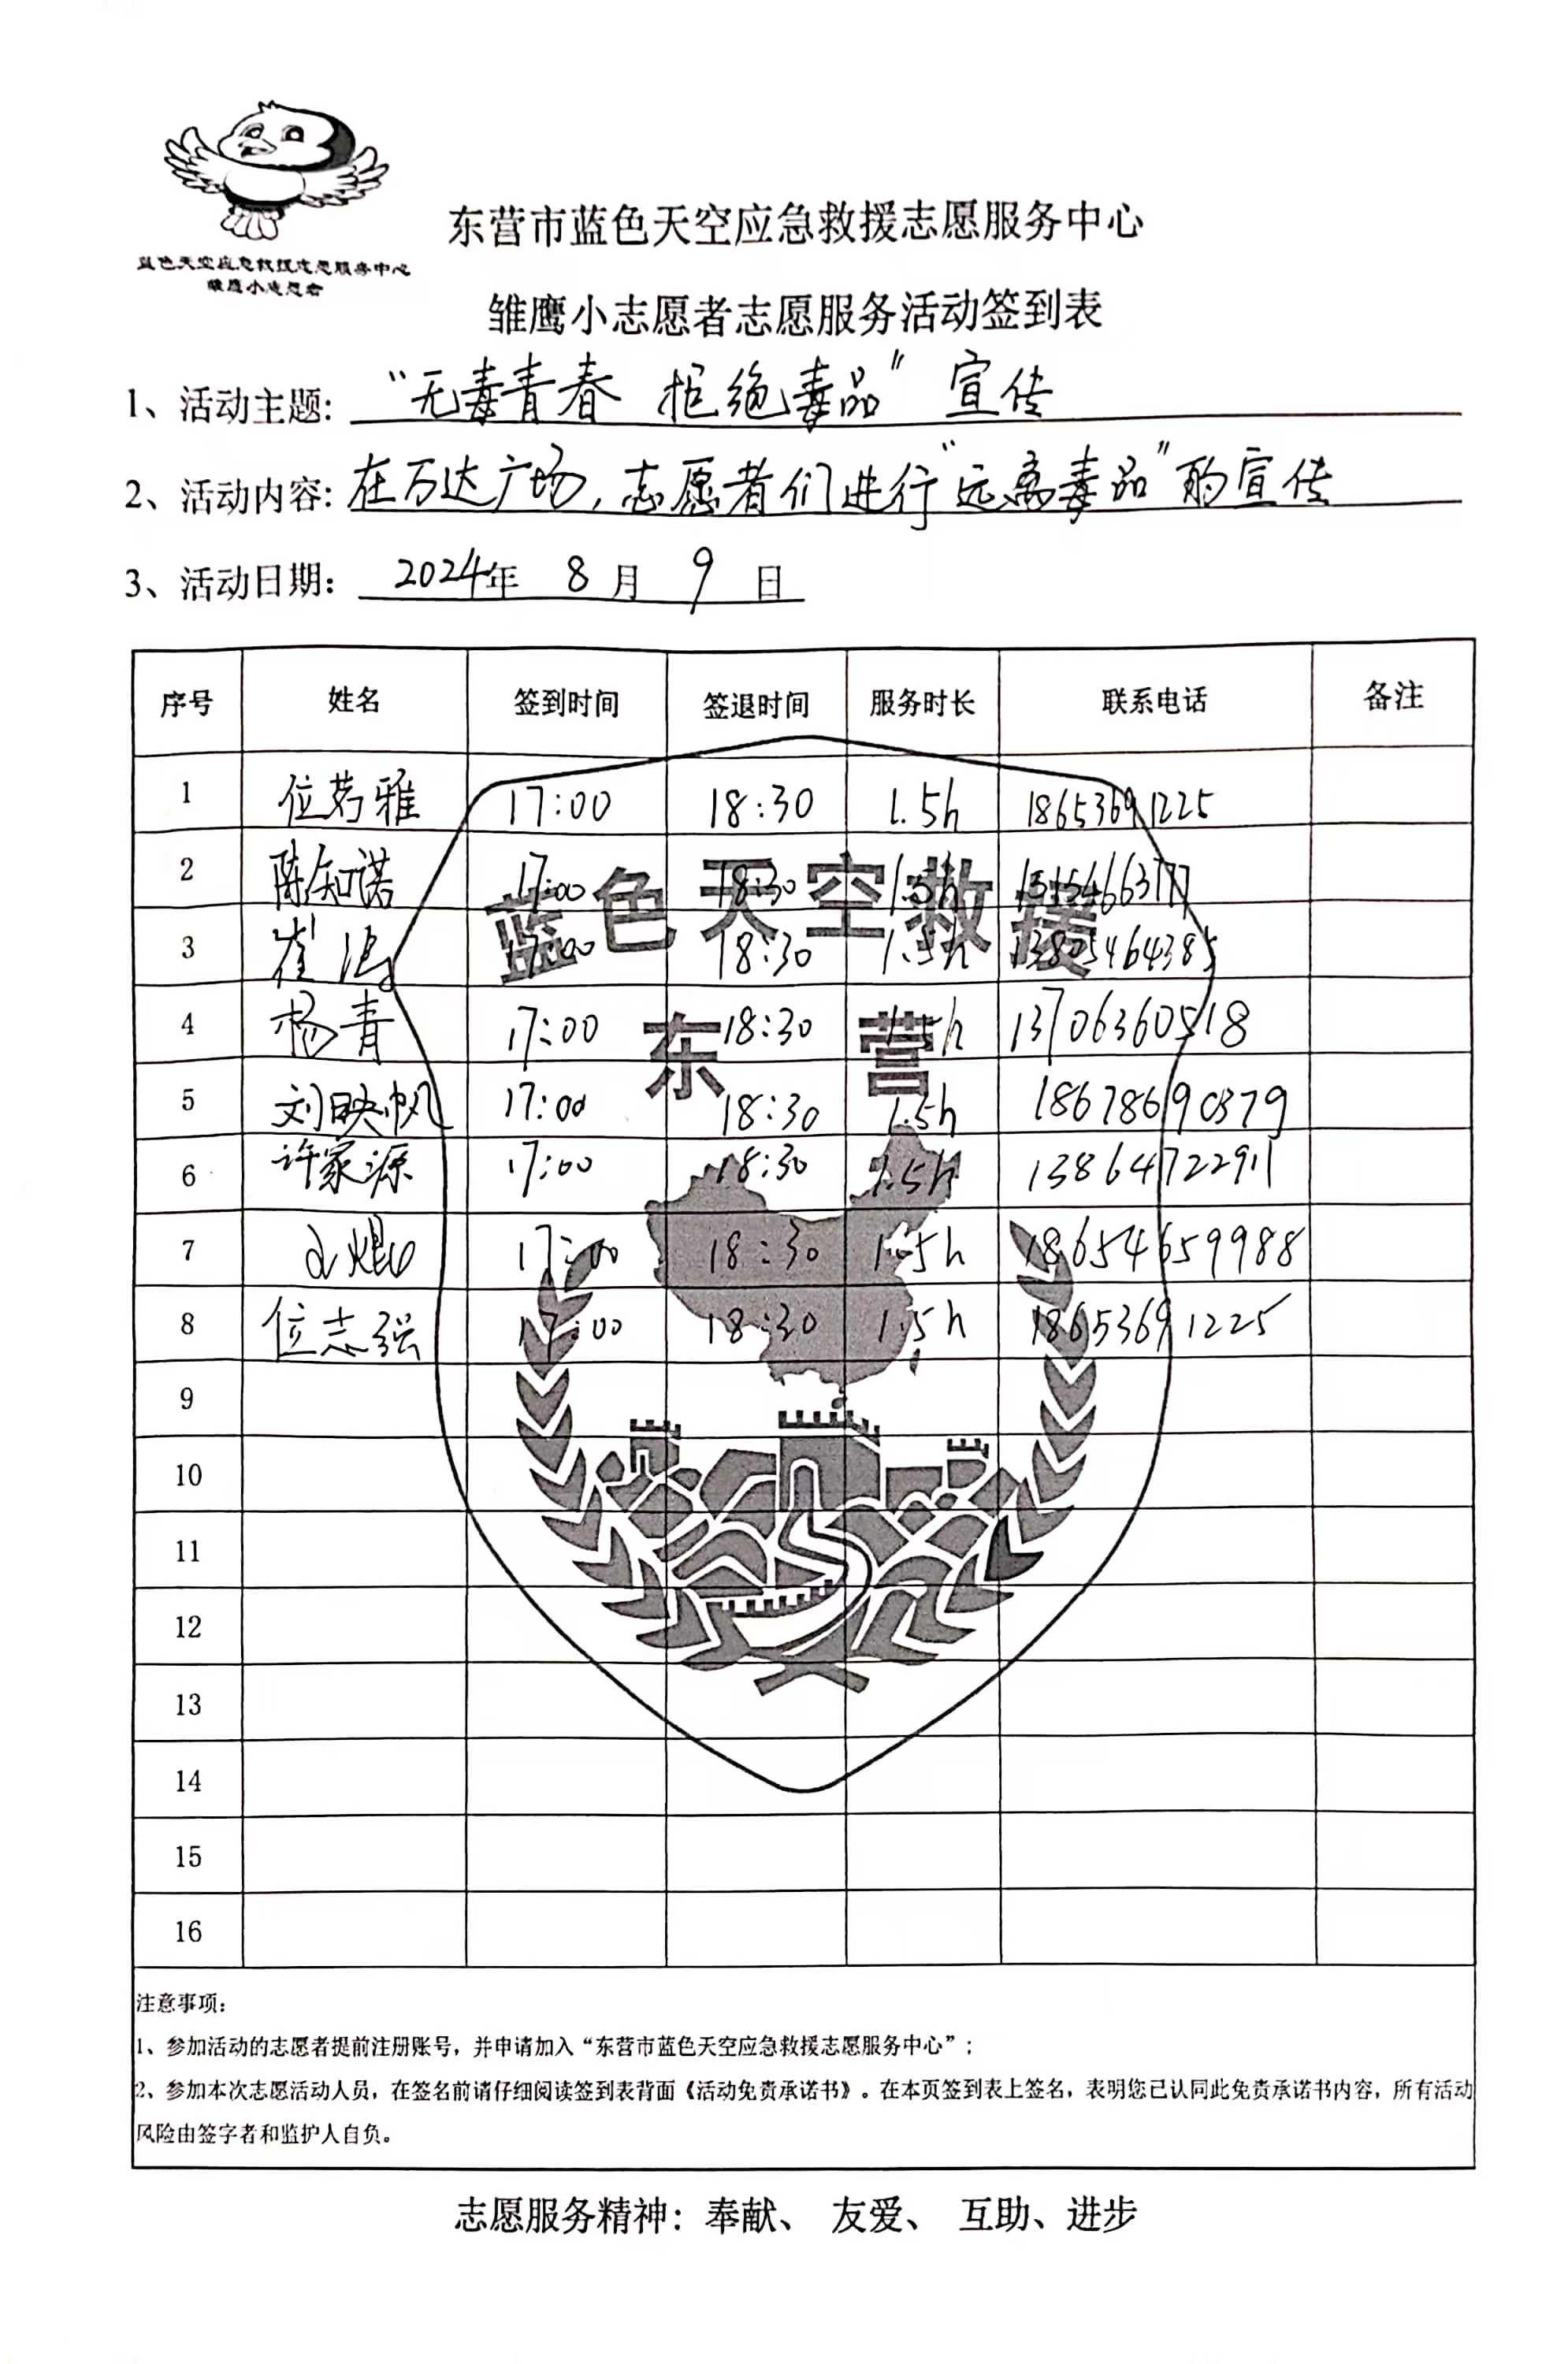 蓝色天空应急救援志愿服务中心
雏鹰小志愿者
东营市蓝色天空应急救援志愿服务中心
雏鹰小志愿者志愿服务活动签到表
1、活动主题: “无毒青春 拒绝毒品”宣传
2、活动内容: 在万达广场,志愿者们进行“远离毒品”的宣传
3、活动日期: 2024年 8 月 9 日
序号 姓名 签到时间 签退时间 服务时长 联系电话 备注
1 位若雅 17:00 18:30 1.5h 18653691225
2 陈知诺 17:00 18:30 1.5h
3 崔涛 17:00 18:30 1.5h
4 杨青 17:00 18:30 1.5h 13706360518
5 刘映帆 17:00 18:30 1.5h 18678690379
6 许家源 17:00 18:30 1.5h 13864722911
7 17:00 18:30 1.5h 18654659988
8 位志强 17:00 18:30 1.5h 18653691225
9
10
11
12
13
14
15
16
蓝色天空救援
东营
注意事项:
1、参加活动的志愿者提前注册账号,并申请加入“东营市蓝色天空应急救援志愿服务中心”;
2、参加本次志愿活动人员,在签名前请仔细阅读签到表背面《活动免责承诺书》。在本页签到表上签名,表明您已认同此免责承诺书内容,所有活动
风险由签字者和监护人自负。
志愿服务精神:奉献、 友爱、 互助、进步